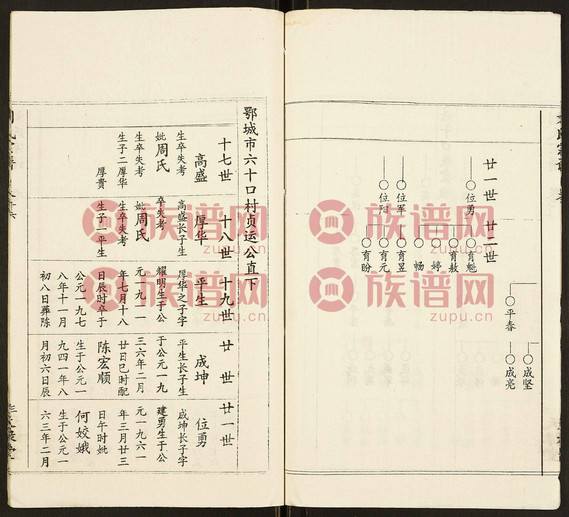 廿一世
廿二世
位勇
育魁
育敖
婷
畅
位军
育昱
位阳
育元
育盼
平春
成坚
成亮
鄂城市六十口村贞运公直下
十七世
十八世
十九世
廿世
廿一世
高盛
生卒失考
妣周氏
生卒失考
生子二厚华
厚贵
厚华
高盛长子生
卒失考
妣周氏
生卒失考
生子一平生
平生
厚华之子字
耀明生于公
元一九二一
年七月十八
日辰时卒于
公元一九七
八年十一月
初八日葬陈
成坤
平生长子生
于公元一九
三六年二月
廿日巳时配
陈宏顺
生于公元一
九四一年八
月初六日辰
位勇
成坤长子字
建勇生于公
元一九六一
年三月廿三
日午时妣
何姣娥
生于公元一
六三年二月
族谱网
zupu.cn
族谱网
zupu.cn
族谱网
zupu.cn
族谱网
zupu.cn